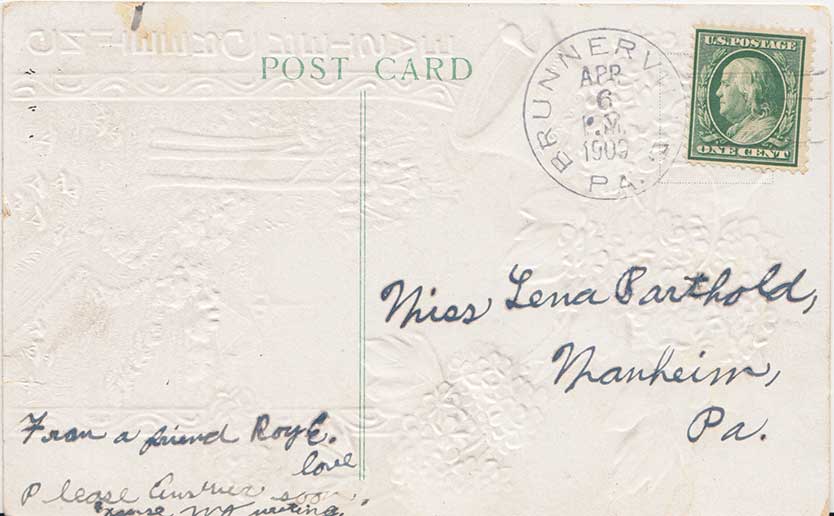 EASTER GREETING
POST CARD
BRUNNERV
APR
6
P.M.
1909
PA.
U.S. POSTAGE
ONE CENT
Miss Lena Barthold,
Manheim,
Pa.
From a friend Roy E.
love
Please Answer soon.
excuse my writing.